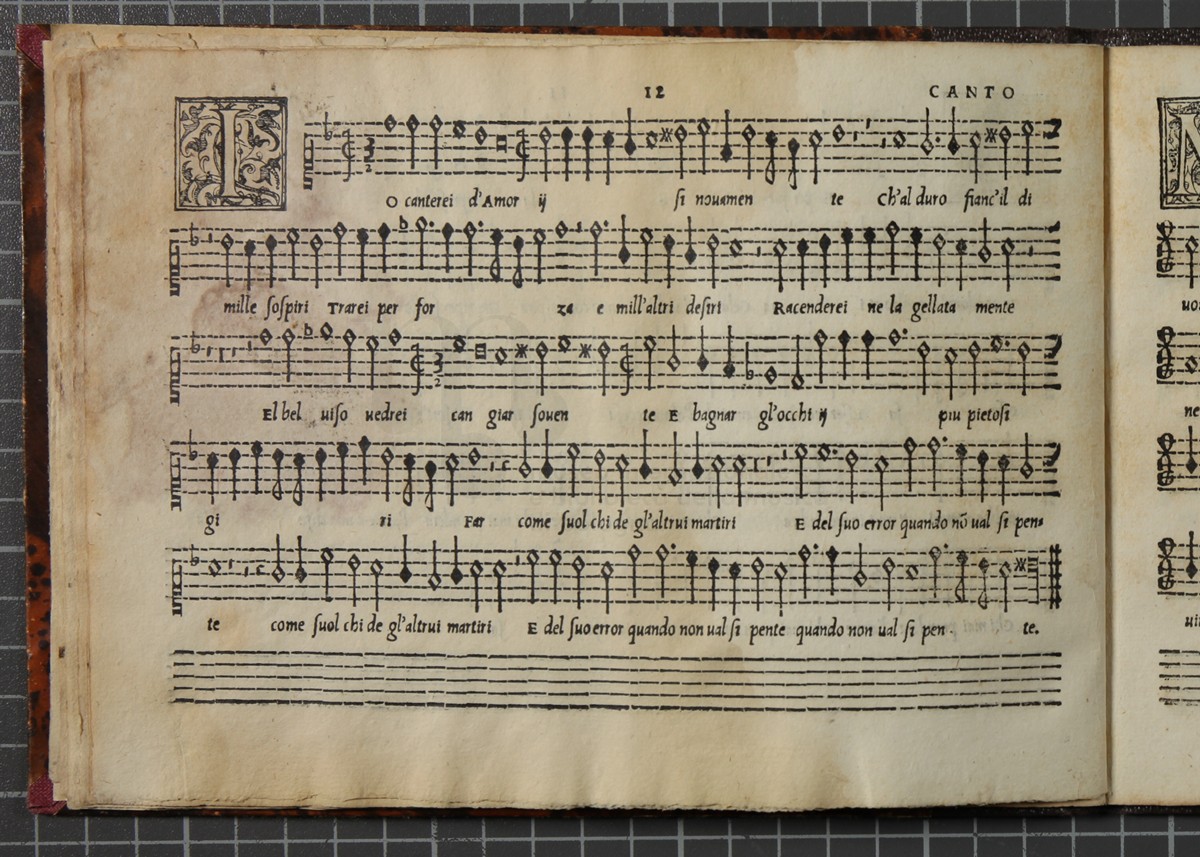 12 CANTO
IO canterei d'Amor ij si nouamen te Ch'al duro fianc'il di
mille sospiri Trarei per for za e mill'altri desiri Racenderei ne la gellata mente
El bel uiso uedrei can giar souen te E bagnar gl'occhi ij piu pietosi
gi ri Far come suol chi de gl'altrui martiri E del suo error quando nō ual si pen
te come suol chi de gl'altrui martiri E del suo error quando non ual si pente quando non ual si pen te.
uo
ne
ui